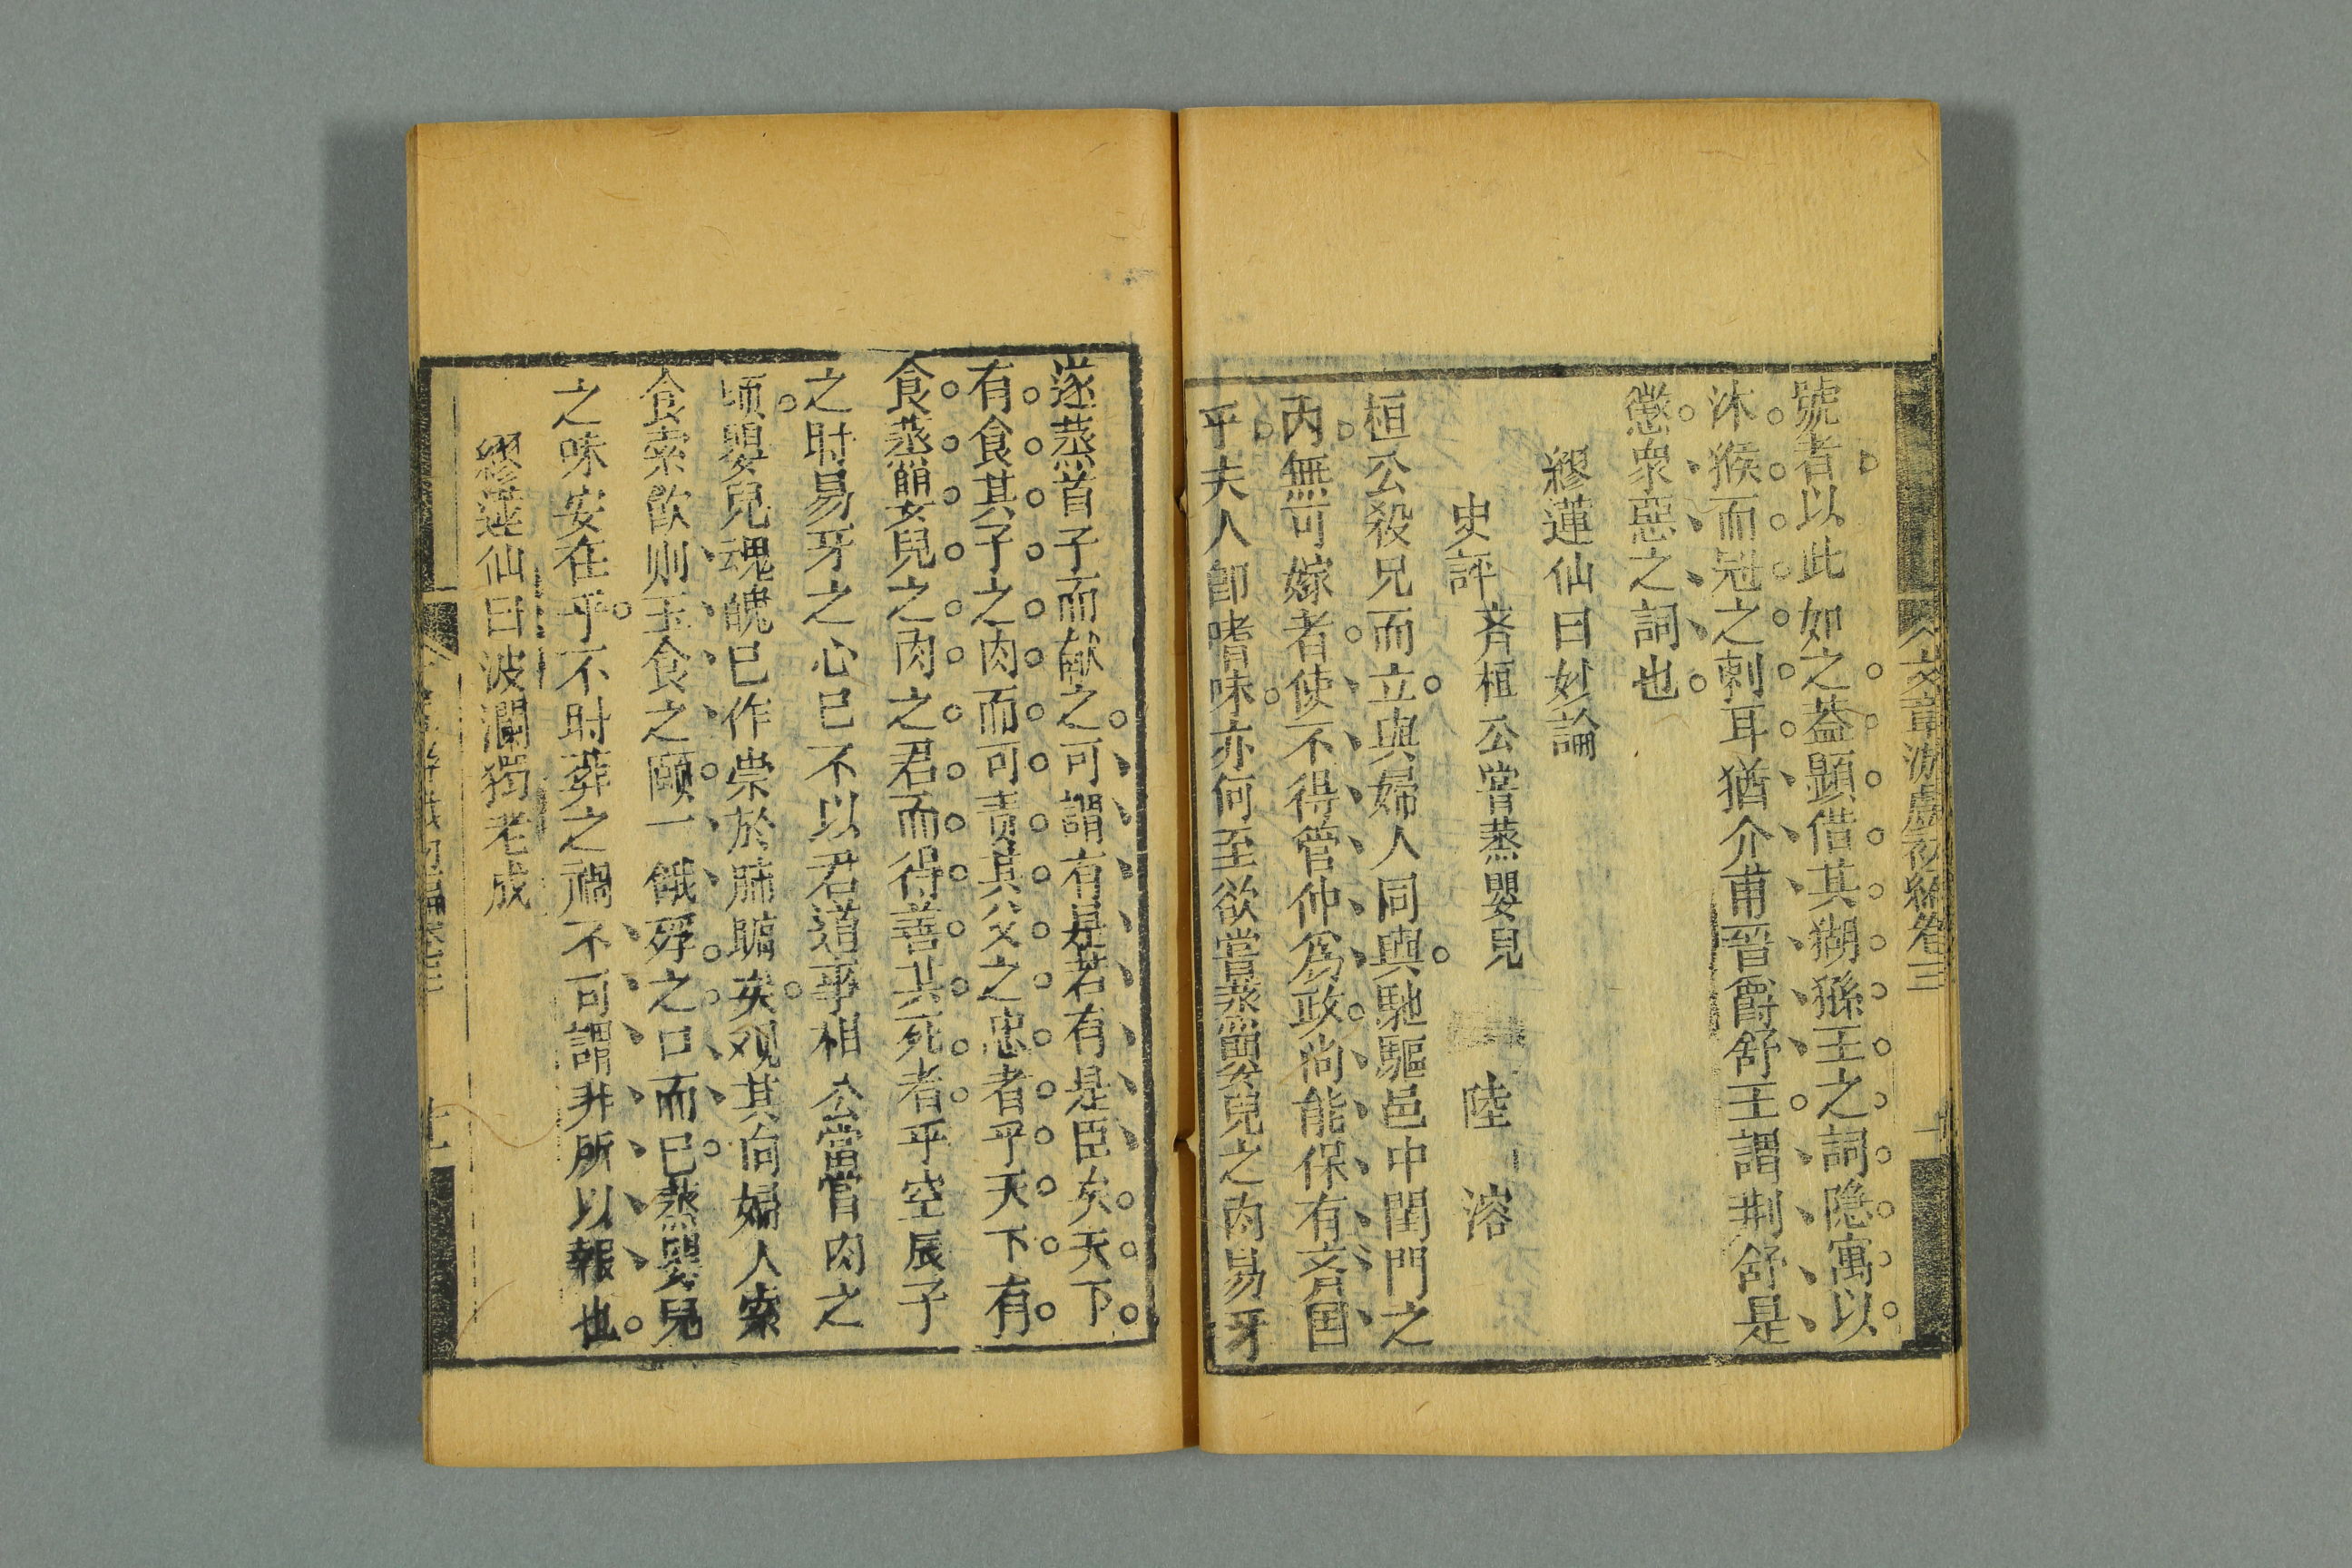 文章游戲初編卷三
號者以此如之葢顯借其猢猻王之詞隐寓以
沐猴而冠之刺耳猶介甫晋爵舒王謂荆舒是
懲衆惡之詞也
繆蓮仙曰妙論
史評 斉桓公嘗蒸嬰兒 陸 溶
桓公殺兄而立與婦人同與馳驅邑中閨門之
内無可嫁者使不得管仲爲政尚能保有斉国
乎夫人卽嗜味亦何至欲嘗蒸嬰兒之肉易牙
遂蒸首子而献之可謂有是君有是臣矣天下
有食其子之肉而可责其父之忠者乎天下有
食蒸嬰兒之肉之君而得善其死者乎空辰子
之时易牙之心已不以君道事相公當嘗肉之
顷嬰兒魂魄已作祟於腑臟矣观其向婦人索
食索飲则玉食之頤一餓殍之口而已蒸嬰兒
之味安在乎不时葬之禍不可謂非所以報也
繆蓮仙曰波瀾獨老成